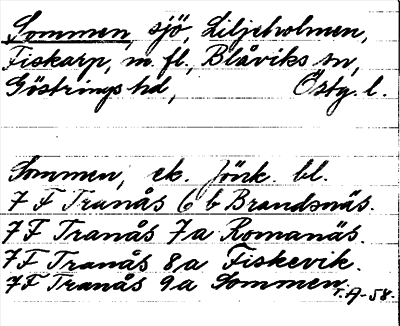 Sommen, sjö, Liljeholmen,
Fiskarp, m. fl., Blåviks sn,
Göstrings hd, Östg. l.
Sommen, ek. Jönk. bl.
7 F Tranås 6 b Brandsnäs.
7F Tranås 7a Romanäs.
7F Tranås 8a Fiskevik.
7F Tranås 9a Sommen.
T.A-58.